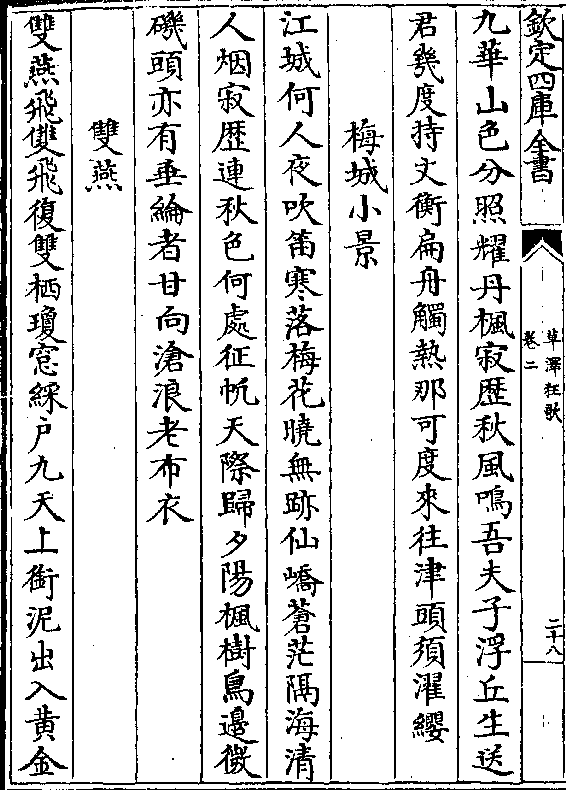 欽定四庫全書
草澤狂歌
卷二
二十八
九華山色分照耀丹楓寂歴秋風鳴吾夫子浮丘生送
君幾度持文衡扁舟觸熱那可度來往津頭須濯纓
梅城小景
江城何人夜吹笛寒落梅花曉無跡仙嶠蒼茫隔海清
人烟寂歴連秋色何處征帆天際歸夕陽楓樹鳥邊微
磯頭亦有垂綸者甘向滄浪老布衣
雙燕
雙燕飛雙飛復雙栖瓊窓綵戶九天上銜泥出入黄金